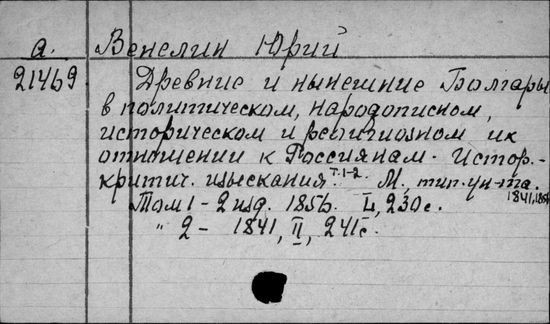 а. Венелин Юрий
21469 Древние и нынешние Болгары
в политическом, народописном,
историческом и религиозном их
отношении к Россиянам. Истор.-
критич. изыскания. т. 1-2. М., тип. ун-та.
1841, 1856
Том 1 - 2 изд. 1856. 230 с.
" 2 - 1841, II, 241 с.